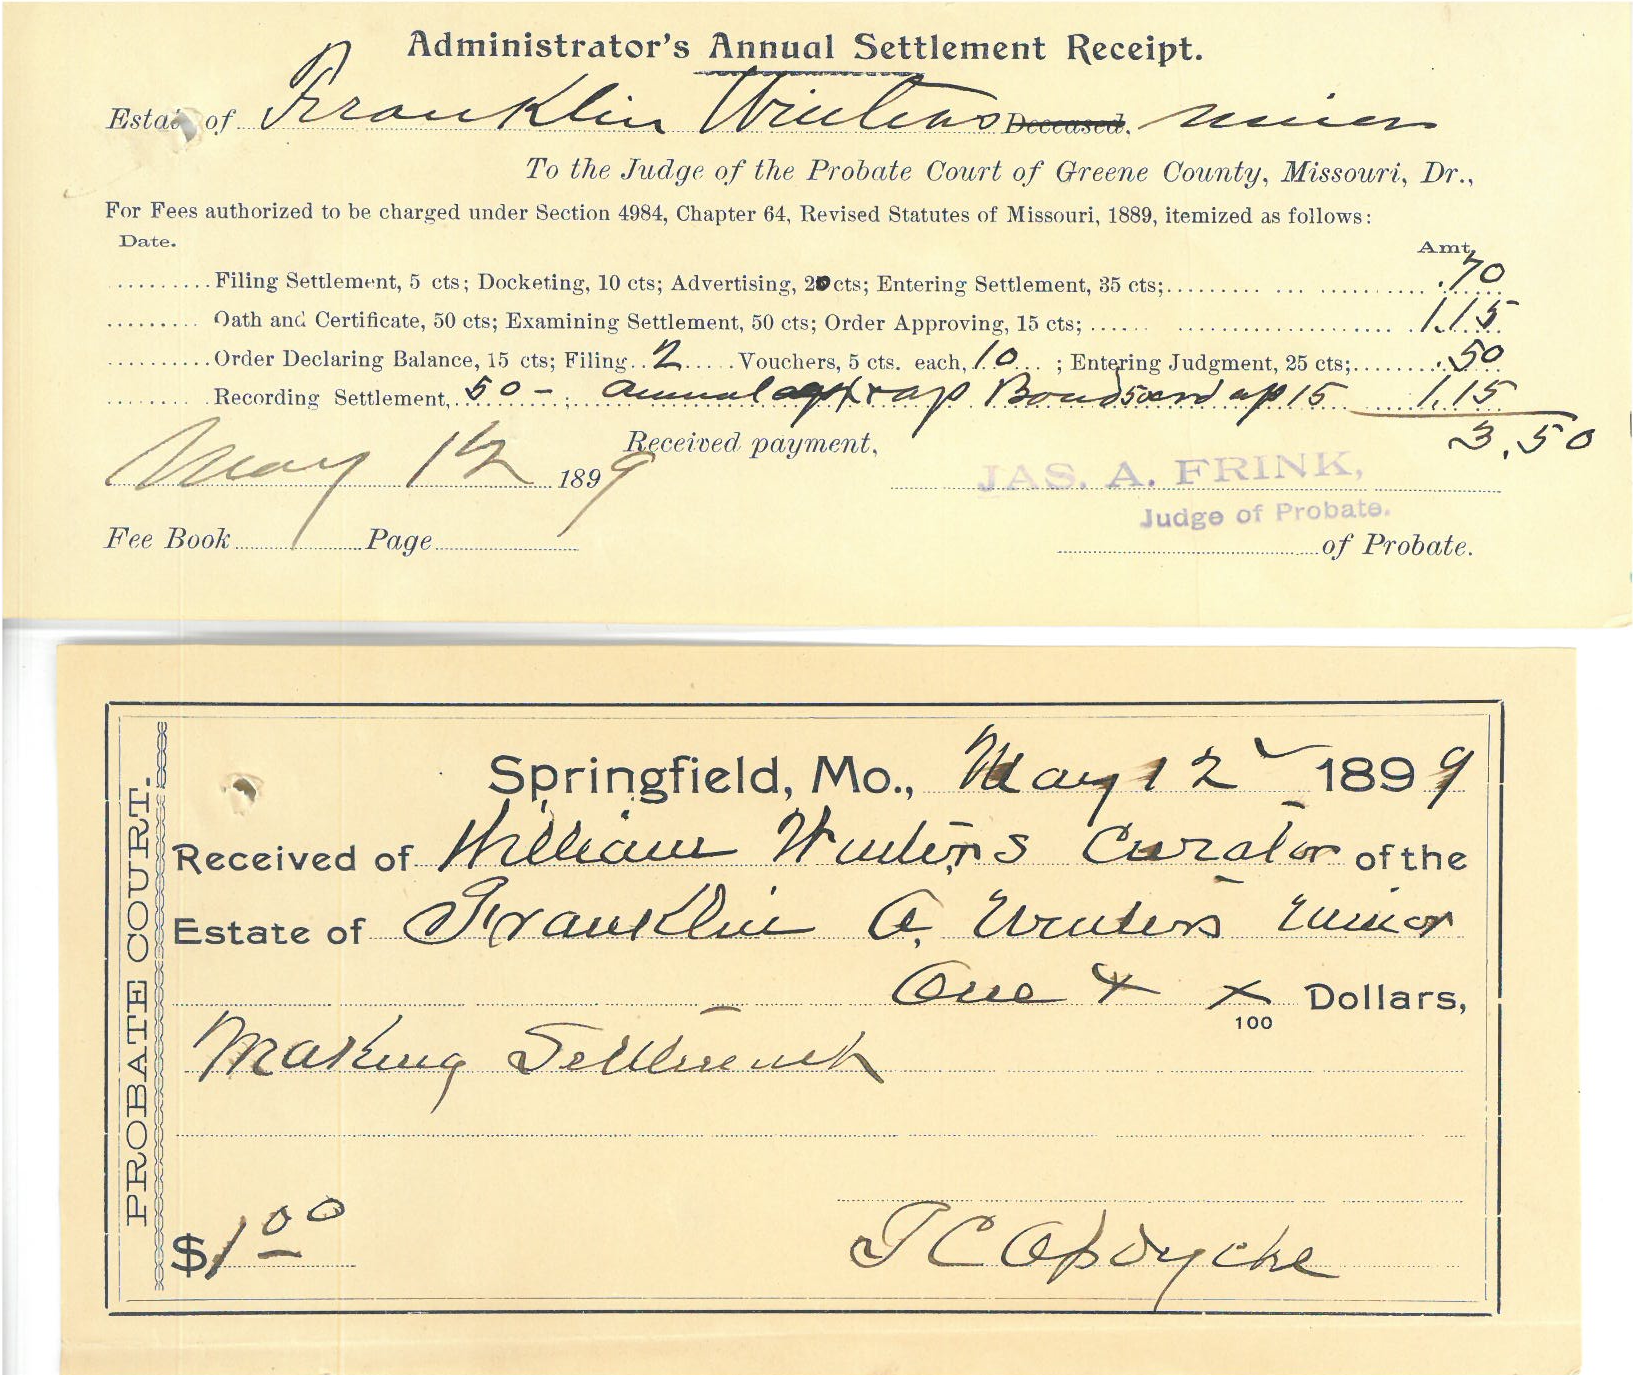 Administrator's Annual Settlement Receipt.
Estate of Franklin Winters Deceased, minor
To the Judge of the Probate Court of Greene County, Missouri, Dr.,
For Fees authorized to be charged under Section 4984, Chapter 64, Revised Statutes of Missouri, 1889, itemized as follows:
Date. Amt.
Filing Settlement, 5 cts; Docketing, 10 cts; Advertising, 20 cts; Entering Settlement, 35 cts; .70
Oath and Certificate, 50 cts; Examining Settlement, 50 cts; Order Approving, 15 cts; 1.15
Order Declaring Balance, 15 cts; Filing 2 Vouchers, 5 cts. each, 10 ; Entering Judgment, 25 cts; .50
Recording Settlement, 50 - ; annual ap Bond 50 ap 15 1.15
3.50
Received payment,
May 12 1899
JAS. A. FRINK,
Judge of Probate.
Fee Book Page of Probate.
PROBATE COURT.
Springfield, Mo., May 12 1899
Received of William Winters Curator of the
Estate of Franklin A. Winters minor
One & x/100 Dollars,
Making Settlement
$1.00
T C Opdycke